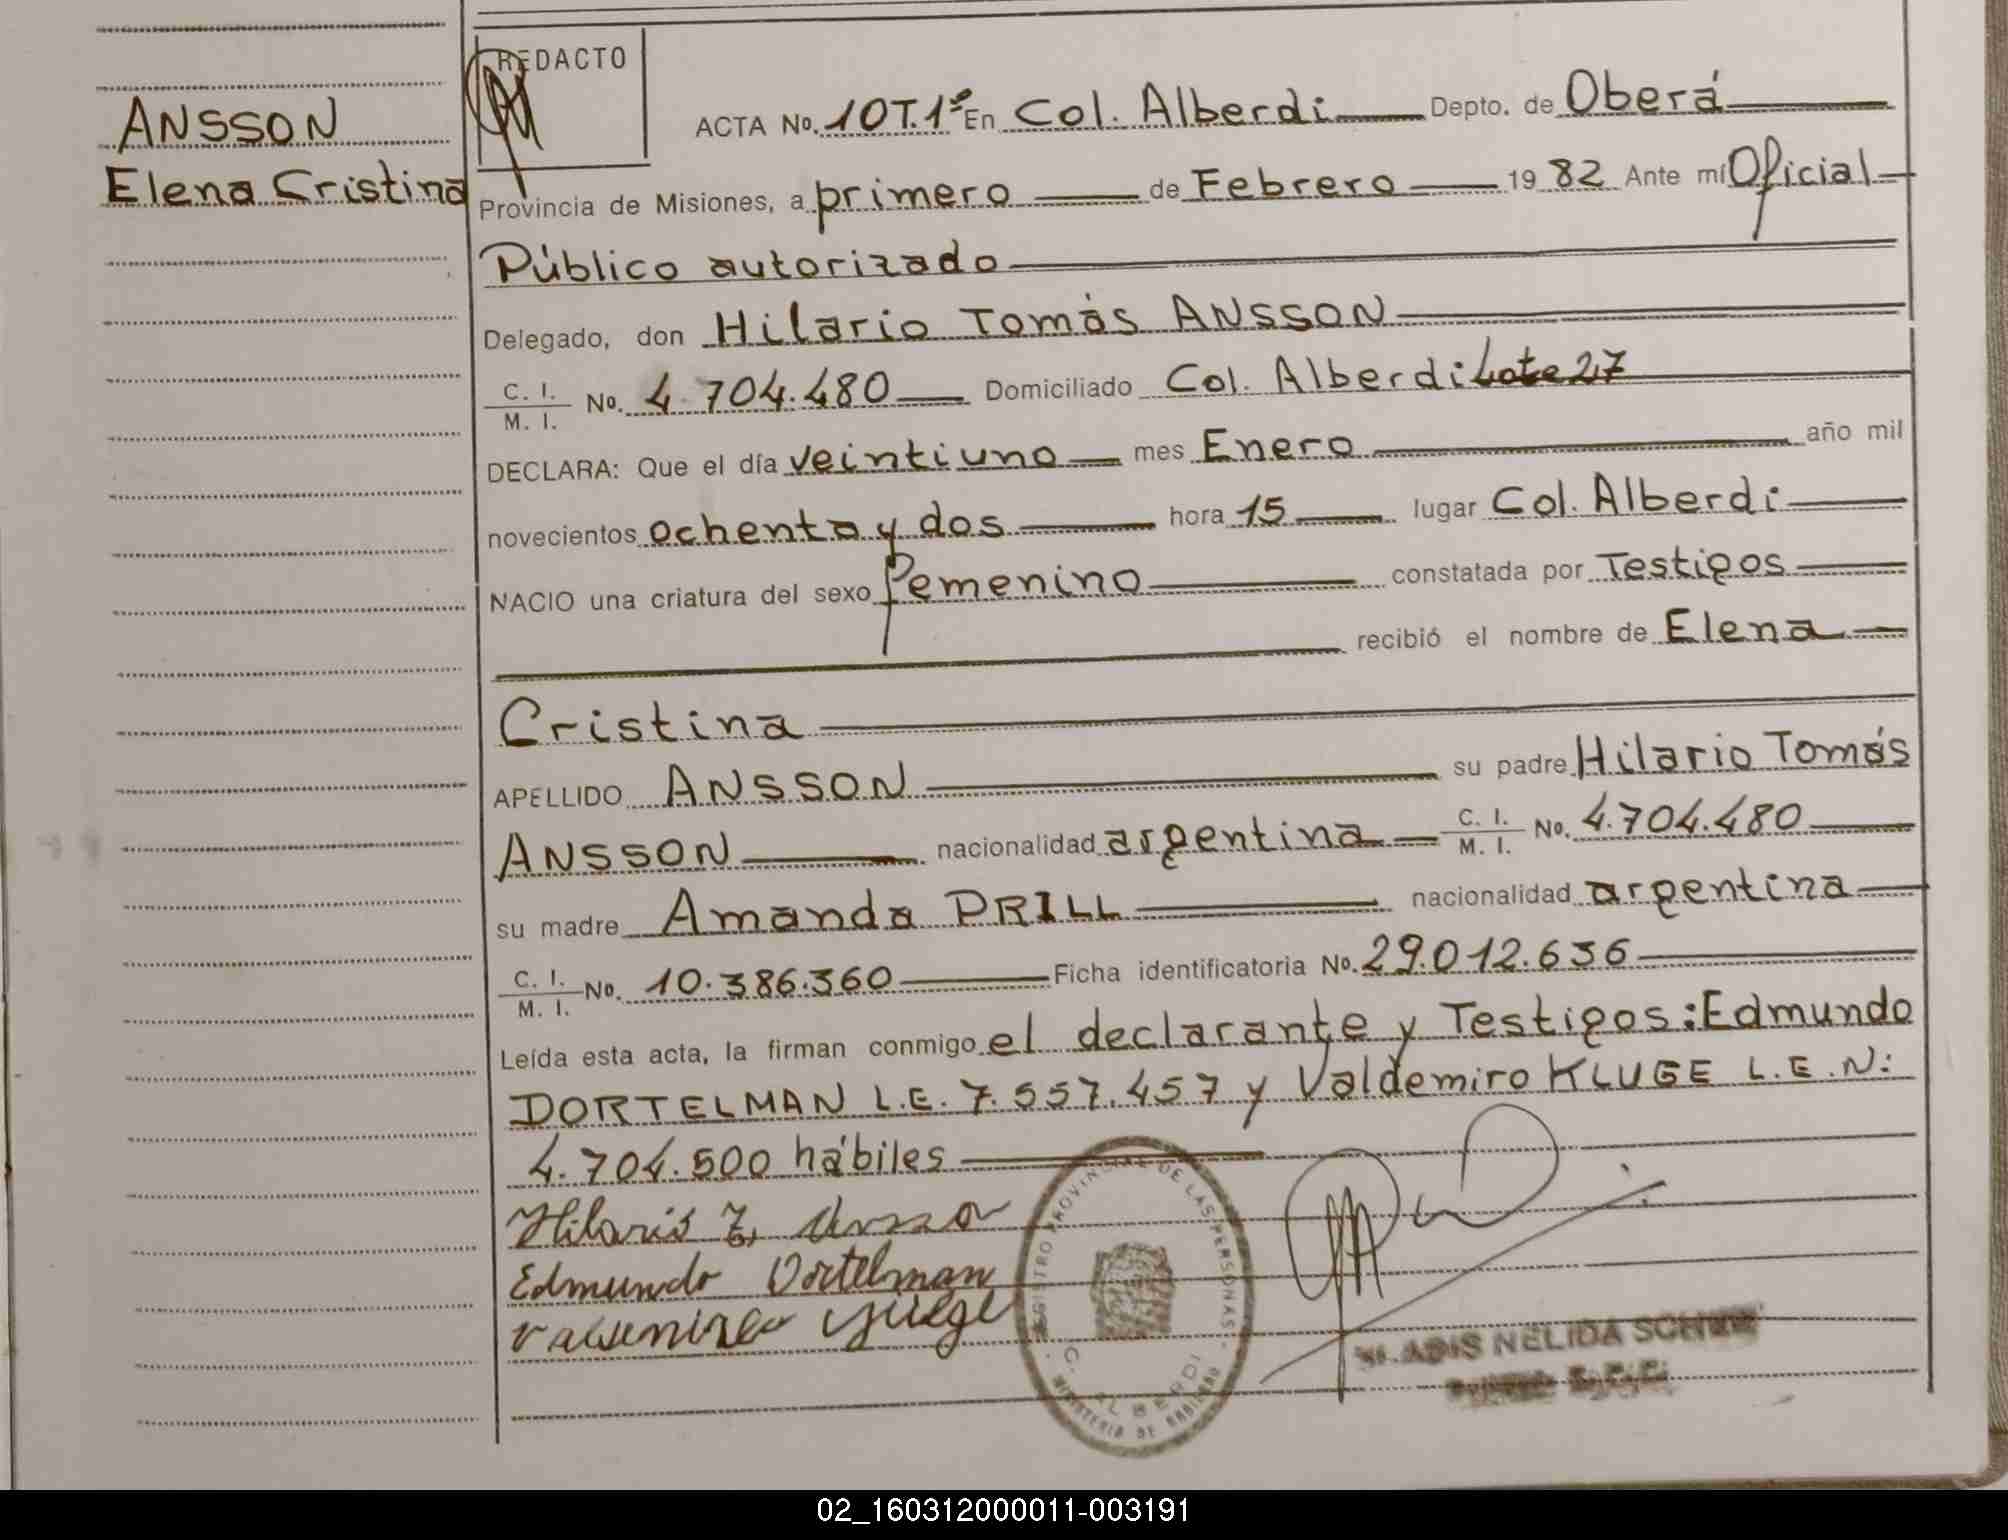 ANSSON
Elena Cristina
REDACTO
ACTA No. 10 T. 1º En Col. Alberdi Depto. de Oberá
Provincia de Misiones, a primero de Febrero 1982 Ante mí Oficial
Público autorizado
Delegado, don Hilario Tomás ANSSON
C. I. / M. I. No. 4.704.480 Domiciliado Col. Alberdi Lote 27
DECLARA: Que el día veintiuno mes Enero año mil
novecientos ochenta y dos hora 15 lugar Col. Alberdi
NACIO una criatura del sexo femenino constatada por Testigos
recibió el nombre de Elena
Cristina
APELLIDO ANSSON su padre Hilario Tomás
ANSSON nacionalidad argentina C. I. / M. I. No. 4.704.480
su madre Amanda PRILL nacionalidad argentina
C. I. / M. I. No. 10.386.360 Ficha identificatoria No. 29.012.636
Leída esta acta, la firman conmigo el declarante y Testigos: Edmundo
DORTELMAN L.E. 7.557.457 y Valdemiro KLUGE L.E.N:
4.704.500 hábiles
Hilario T. Ansson
Edmundo Dortelman
REGISTRO PROVINCIAL DE LAS PERSONAS
C. ALBERDI
MINISTERIO DE GOBIERNO
NELIDA
02_160312000011-003191